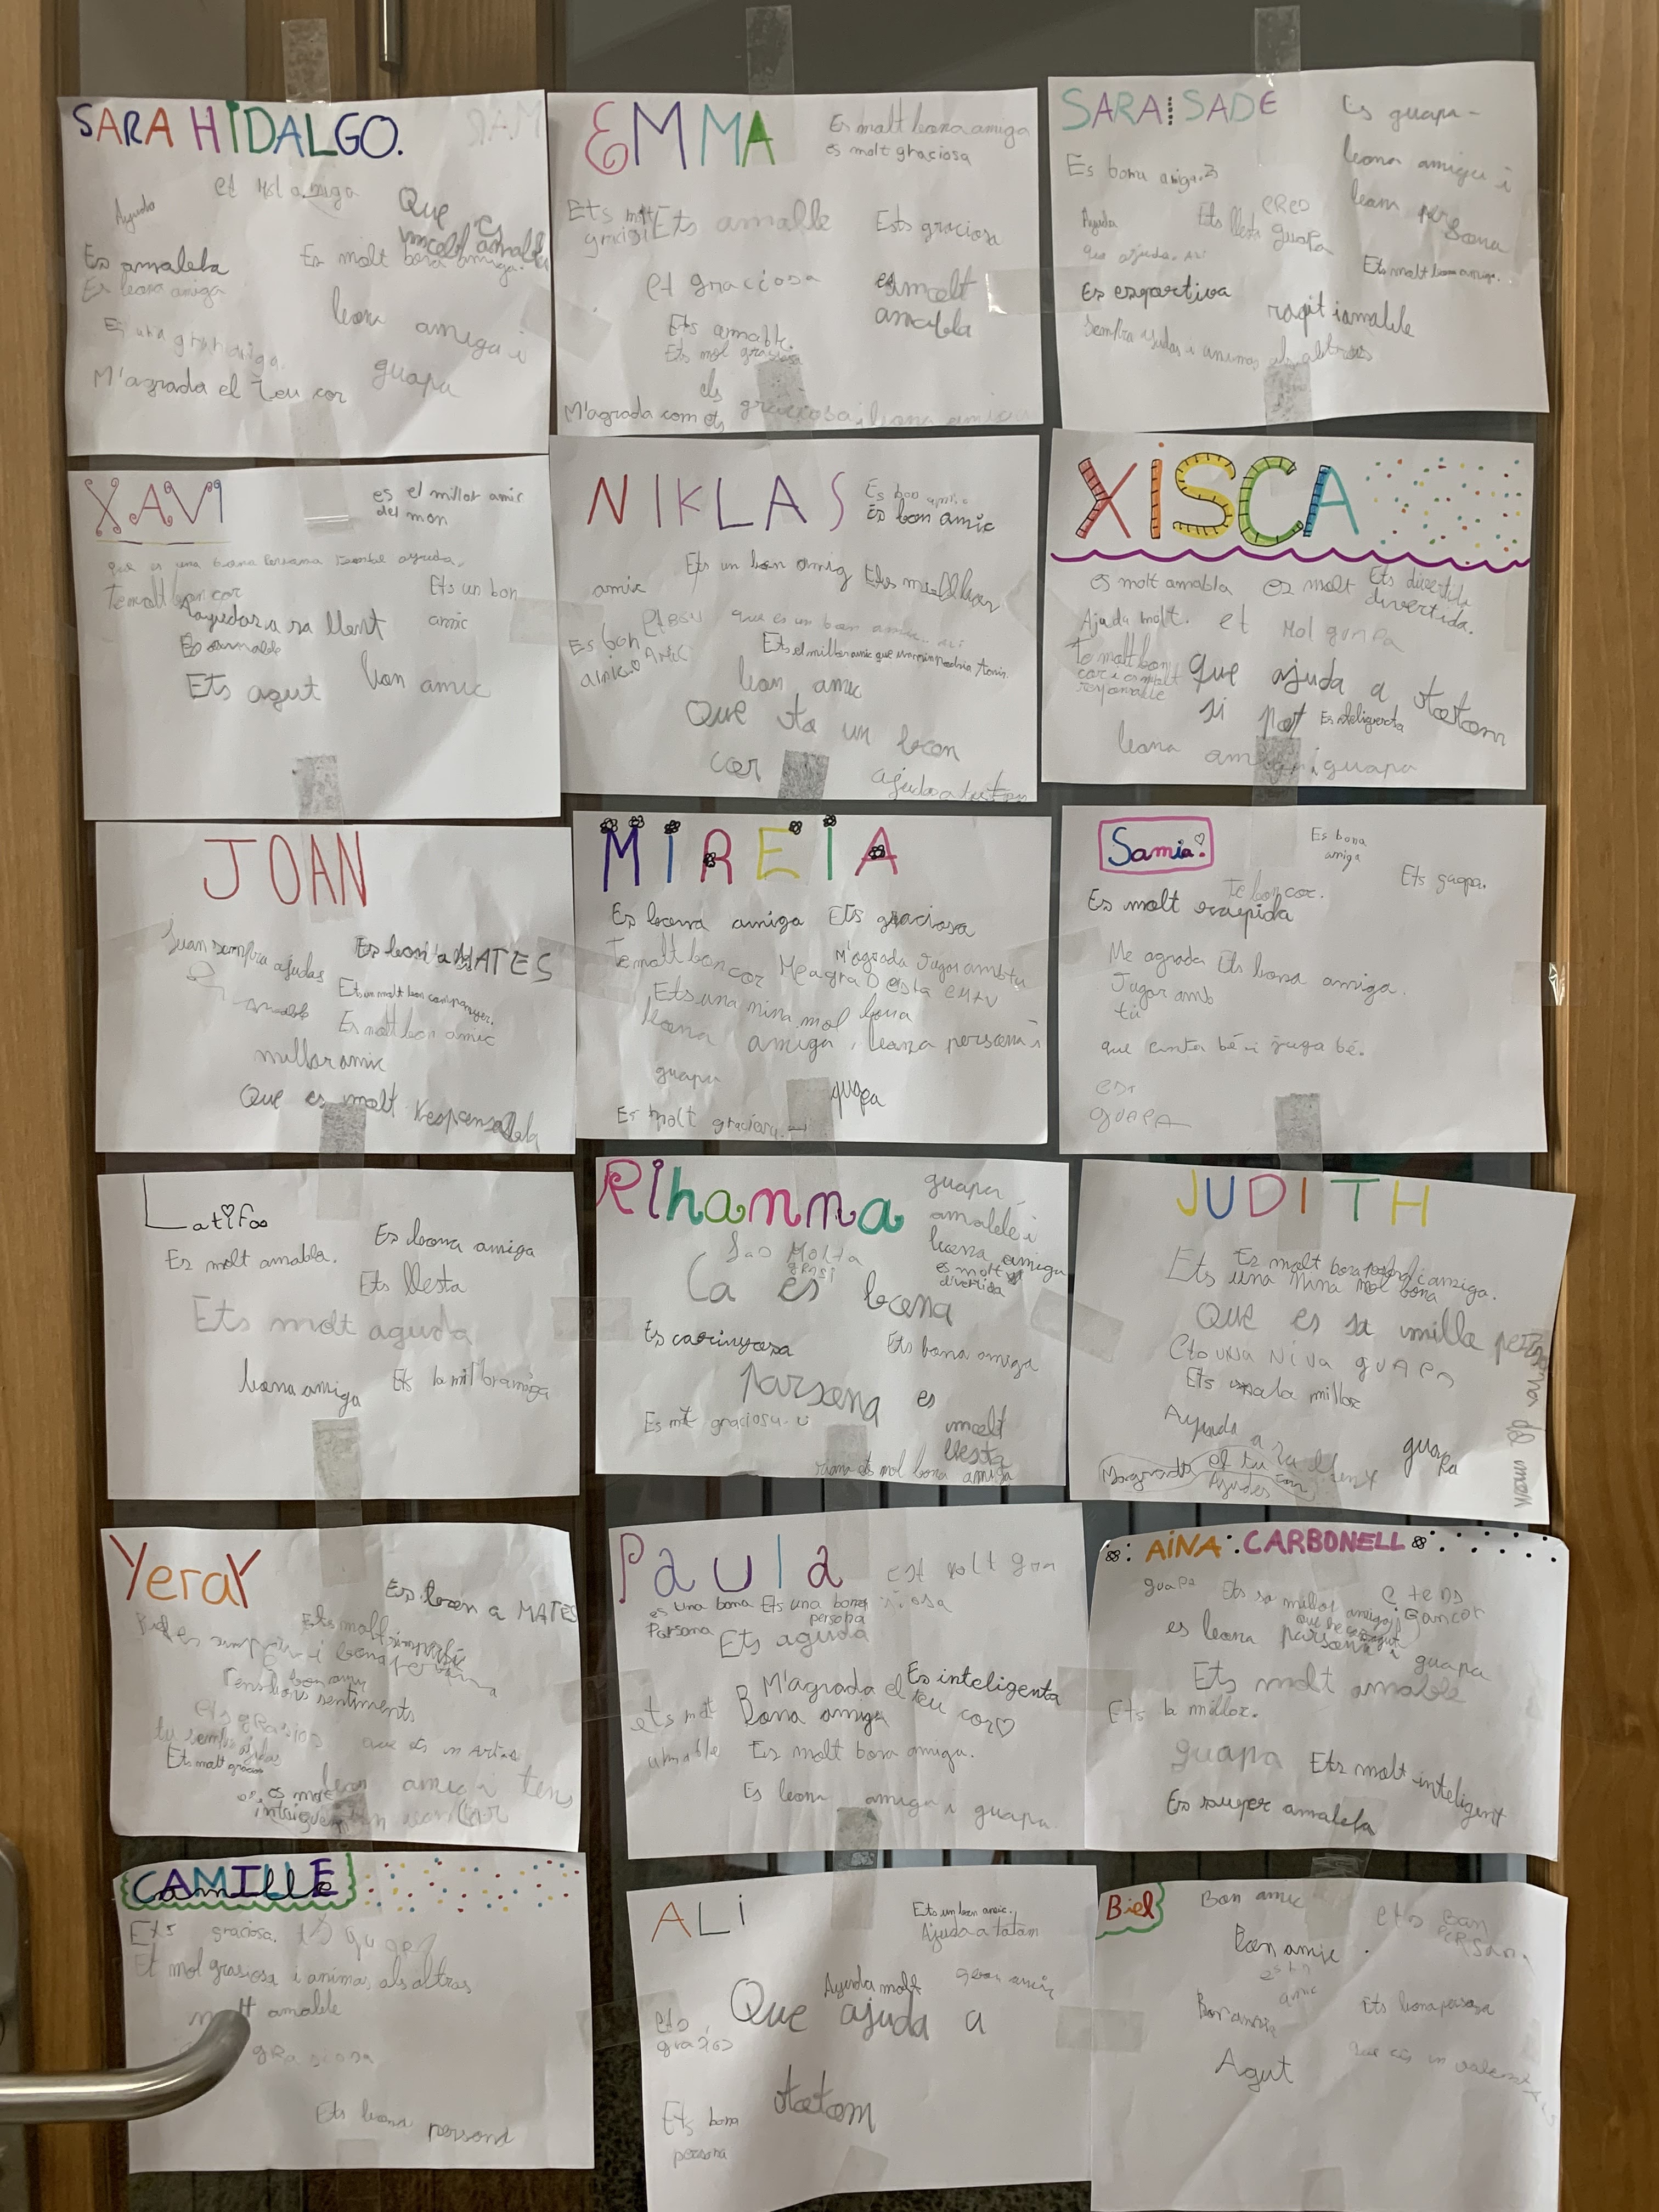 SARA HIDALGO.
amiga
Ayuda
Que es
molt amable
Es amabla
Es molt bona amiga.
Es bona amiga
bona amiga i
guapa
Es una gran amiga.
M'agrada el teu cor
EMMA
Es molt bona amiga
es molt graciosa
Ets molt
Ets amable
Ets graciosa
et graciosa
es molt
amabla
Ets amable.
Ets mol graciosa
els
M'agrada com ets
graciosa i bona amiga
SARA SADE
Es guapa
bona amiga i
bona persona
Es bona amiga
Ayuda
Ets llesta
guapa
que ajuda.
Ets molt bona amiga.
Es esportiva
rapit i amable
Sempra ajudas i animas als altres
XAVI
es el millor amic
del mon
que es una bona persona tambe ayuda.
te molt bon cor
Ets un bon
amic
Aayudar a sa llent
Es amable
Ets agut
bon amic
NIKLAS
Es bon amic
Es bon amic
amic
Ets un bon amig
Es bon
amic
AMIC
que es un bon amic
Ets el millor amic que un nin podria tenir.
bon amic
Que te un bon
cor
ajudas a tots
XISCA
es molt amabla
es molt
divertida.
Ets divertida
Ajuda molt.
et mol guapa
Te molt bon
cor i es molt
responsable
que ajuda a totom
si pot
Es inteligenta
bona amiga i guapa
JOAN
Juan sempra ajudas
Es bon a MATES
amable
Ets un molt bon companyer.
Es molt bon amic
millor amic
Que es molt responsabla
MIREIA
Es bona amiga
Ets graciosa
Te molt bon cor
M'agrada Jugar amb tu
Ets una nina mol bona
bona amiga, bona persona i
guapa
guapa
Es molt graciosa
Samia
Es bona
amiga
Ets guapa.
Te bon cor.
Es molt rapida
Me agrada
Jugar amb
tu
Ets bona amiga.
que canta bé i juga bé.
ets
guapa
Latifa
Es molt amabla.
Es bona amiga
Ets llesta
Ets molt aguda
bona amiga
Ets la millor amiga
Rihanna
guapa
amable i
bona amiga
es molt
divertida
Ca es bona
Es carinyosa
Ets bona amiga
parsona
es
molt
llesta
Es molt graciosa
ets mol bona amiga
JUDITH
Es molt bona persona i amiga.
Ets una nina mol bona
Que es sa milla persona del mon
Ets una nina guapa
Ets la millor
Ayuda a sa llent
guapa
M'agrada el tu cor
Ayudes
Yeray
Es bon a MATES
Ets molt simpatic
bona persona
bon amic
Tens bons sentiments
ets grasios
tu sempre ajudas
Ets molt gracios
que ets un artista
bon amic i tens
es molt
Paula
ets molt gra
siosa
es una bona
Parsona
Ets una bona
persona
Ets aguda
M'agrada el teu cor
Es inteligenta
ets molt
amable
Bona amiga
Es molt bona amiga.
Es bona amiga i guapa
AINA CARBONELL
guapa
Ets sa millor amiga
que he conegut
e tens
gancor
es bona parsona i
guapa
Ets molt amable
Ets la millor.
guapa
Ets molt inteligent
Es super amabla
CAMILLE
Camille
Ets graciosa.
Et mol grasiosa i animas als altras
molt amable
grasiosa
Ets bona persona
ALI
Ets un bon amic.
Ajuda a totom
Ayuda molt
gran amic
ets
grasios
Que ajuda a
totom
Ets bona
persona
Biel
Bon amic
ets Ban
Persan.
Bon amic
es bn
amic
Bon amic
Ets bona persona
Agut
que ets un valent